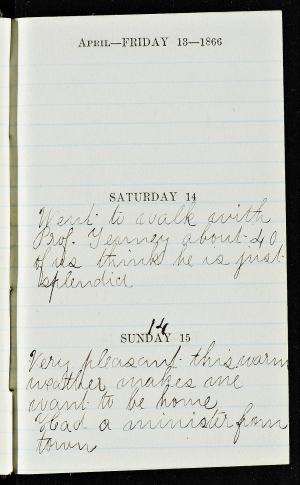 APRIL—FRIDAY 13—1866
SATURDAY 14
Went to walk with
Prof. Tenney about 40
of us think he is just
splendid
14
SUNDAY 15
Very pleasant this warm
weather makes me
want to be home
Had a minister from
town